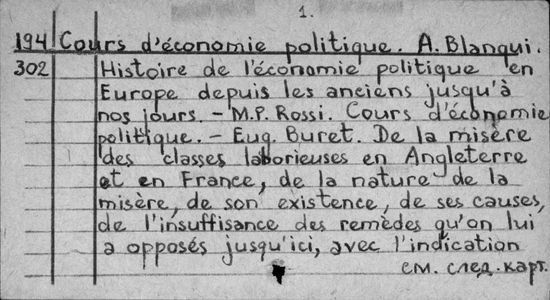 1.
194 Cours d'économie politique. A. Blanqui.
302 Histoire de l'économie politique en
Europe depuis les anciens jusqu'à
nos jours. – M.P. Rossi. Cours d'économie
politique. – Eug. Buret. De la misère
des classes laborieuses en Angleterre
et en France, de la nature de la
misère, de son existence, de ses causes,
de l'insuffisance des remèdes qu'on lui
a opposés jusqu'ici, avec l'indication
см. след. карт.